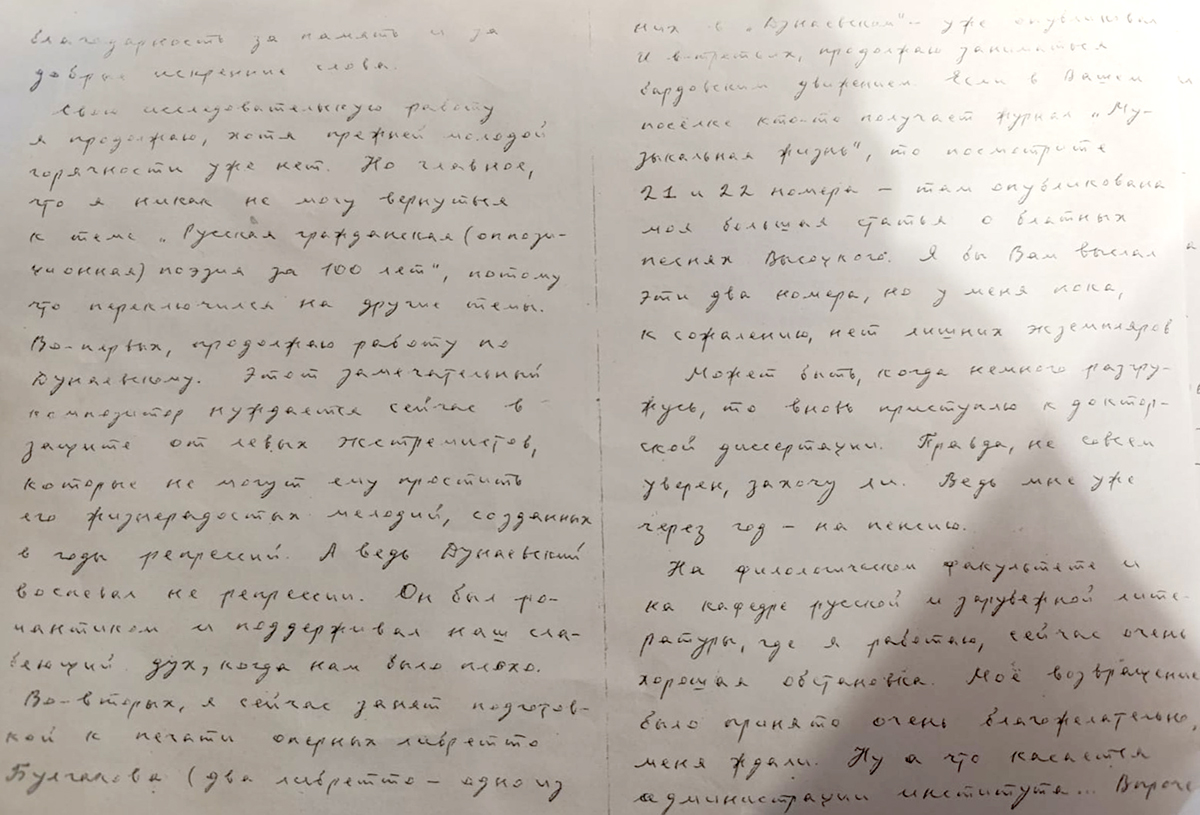 благодарность за память и за
добрые искренние слова.
Свою исследовательскую работу
я продолжаю, хотя прежней молодой
горячности уже нет. Но главное,
что я никак не могу вернуться
к теме „Русская гражданская (оппози-
ционная) поэзия за 100 лет“, потому
что переключился на другие темы.
Во-первых, продолжаю работу по
Дунаевскому. Этот замечательный
композитор нуждается сейчас в
защите от левых экстремистов,
которые не могут ему простить
его жизнерадостых мелодий, созданных
в годы репрессий. А ведь Дунаевский
воспевал не репрессии. Он был ро-
мантиком и поддерживал наш сла-
беющий дух, когда нам было плохо.
Во-вторых, я сейчас занят подготов-
кой к печати оперных либретто
Булгакова (два либретто – одно из
них с „Дунаевским“ – уже опубликовал
И в-третьих, продолжаю заниматься
бардовским движением. Если в Вашем
посёлке кто-то получает журнал „Му-
зыкальная жизнь“, то посмотрите
21 и 22 номера – там опубликована
моя большая статья о блатных
песнях Высоцкого. Я бы Вам выслал
эти два номера, но у меня пока,
к сожалению, нет лишних экземпляров
Может быть, когда немного разгру-
жусь, то вновь приступлю к доктор-
ской диссертации. Правда, не совсем
уверен, захочу ли. Ведь мне уже
через год – на пенсию.
На филологическом факультете и
на кафедре русской и зарубежной лите-
ратуры, где я работаю, сейчас очень
хорошая обстановка. Моё возвращение
было принято очень благожелательно,
меня ждали. Ну а что касается
администрации института... Впроче